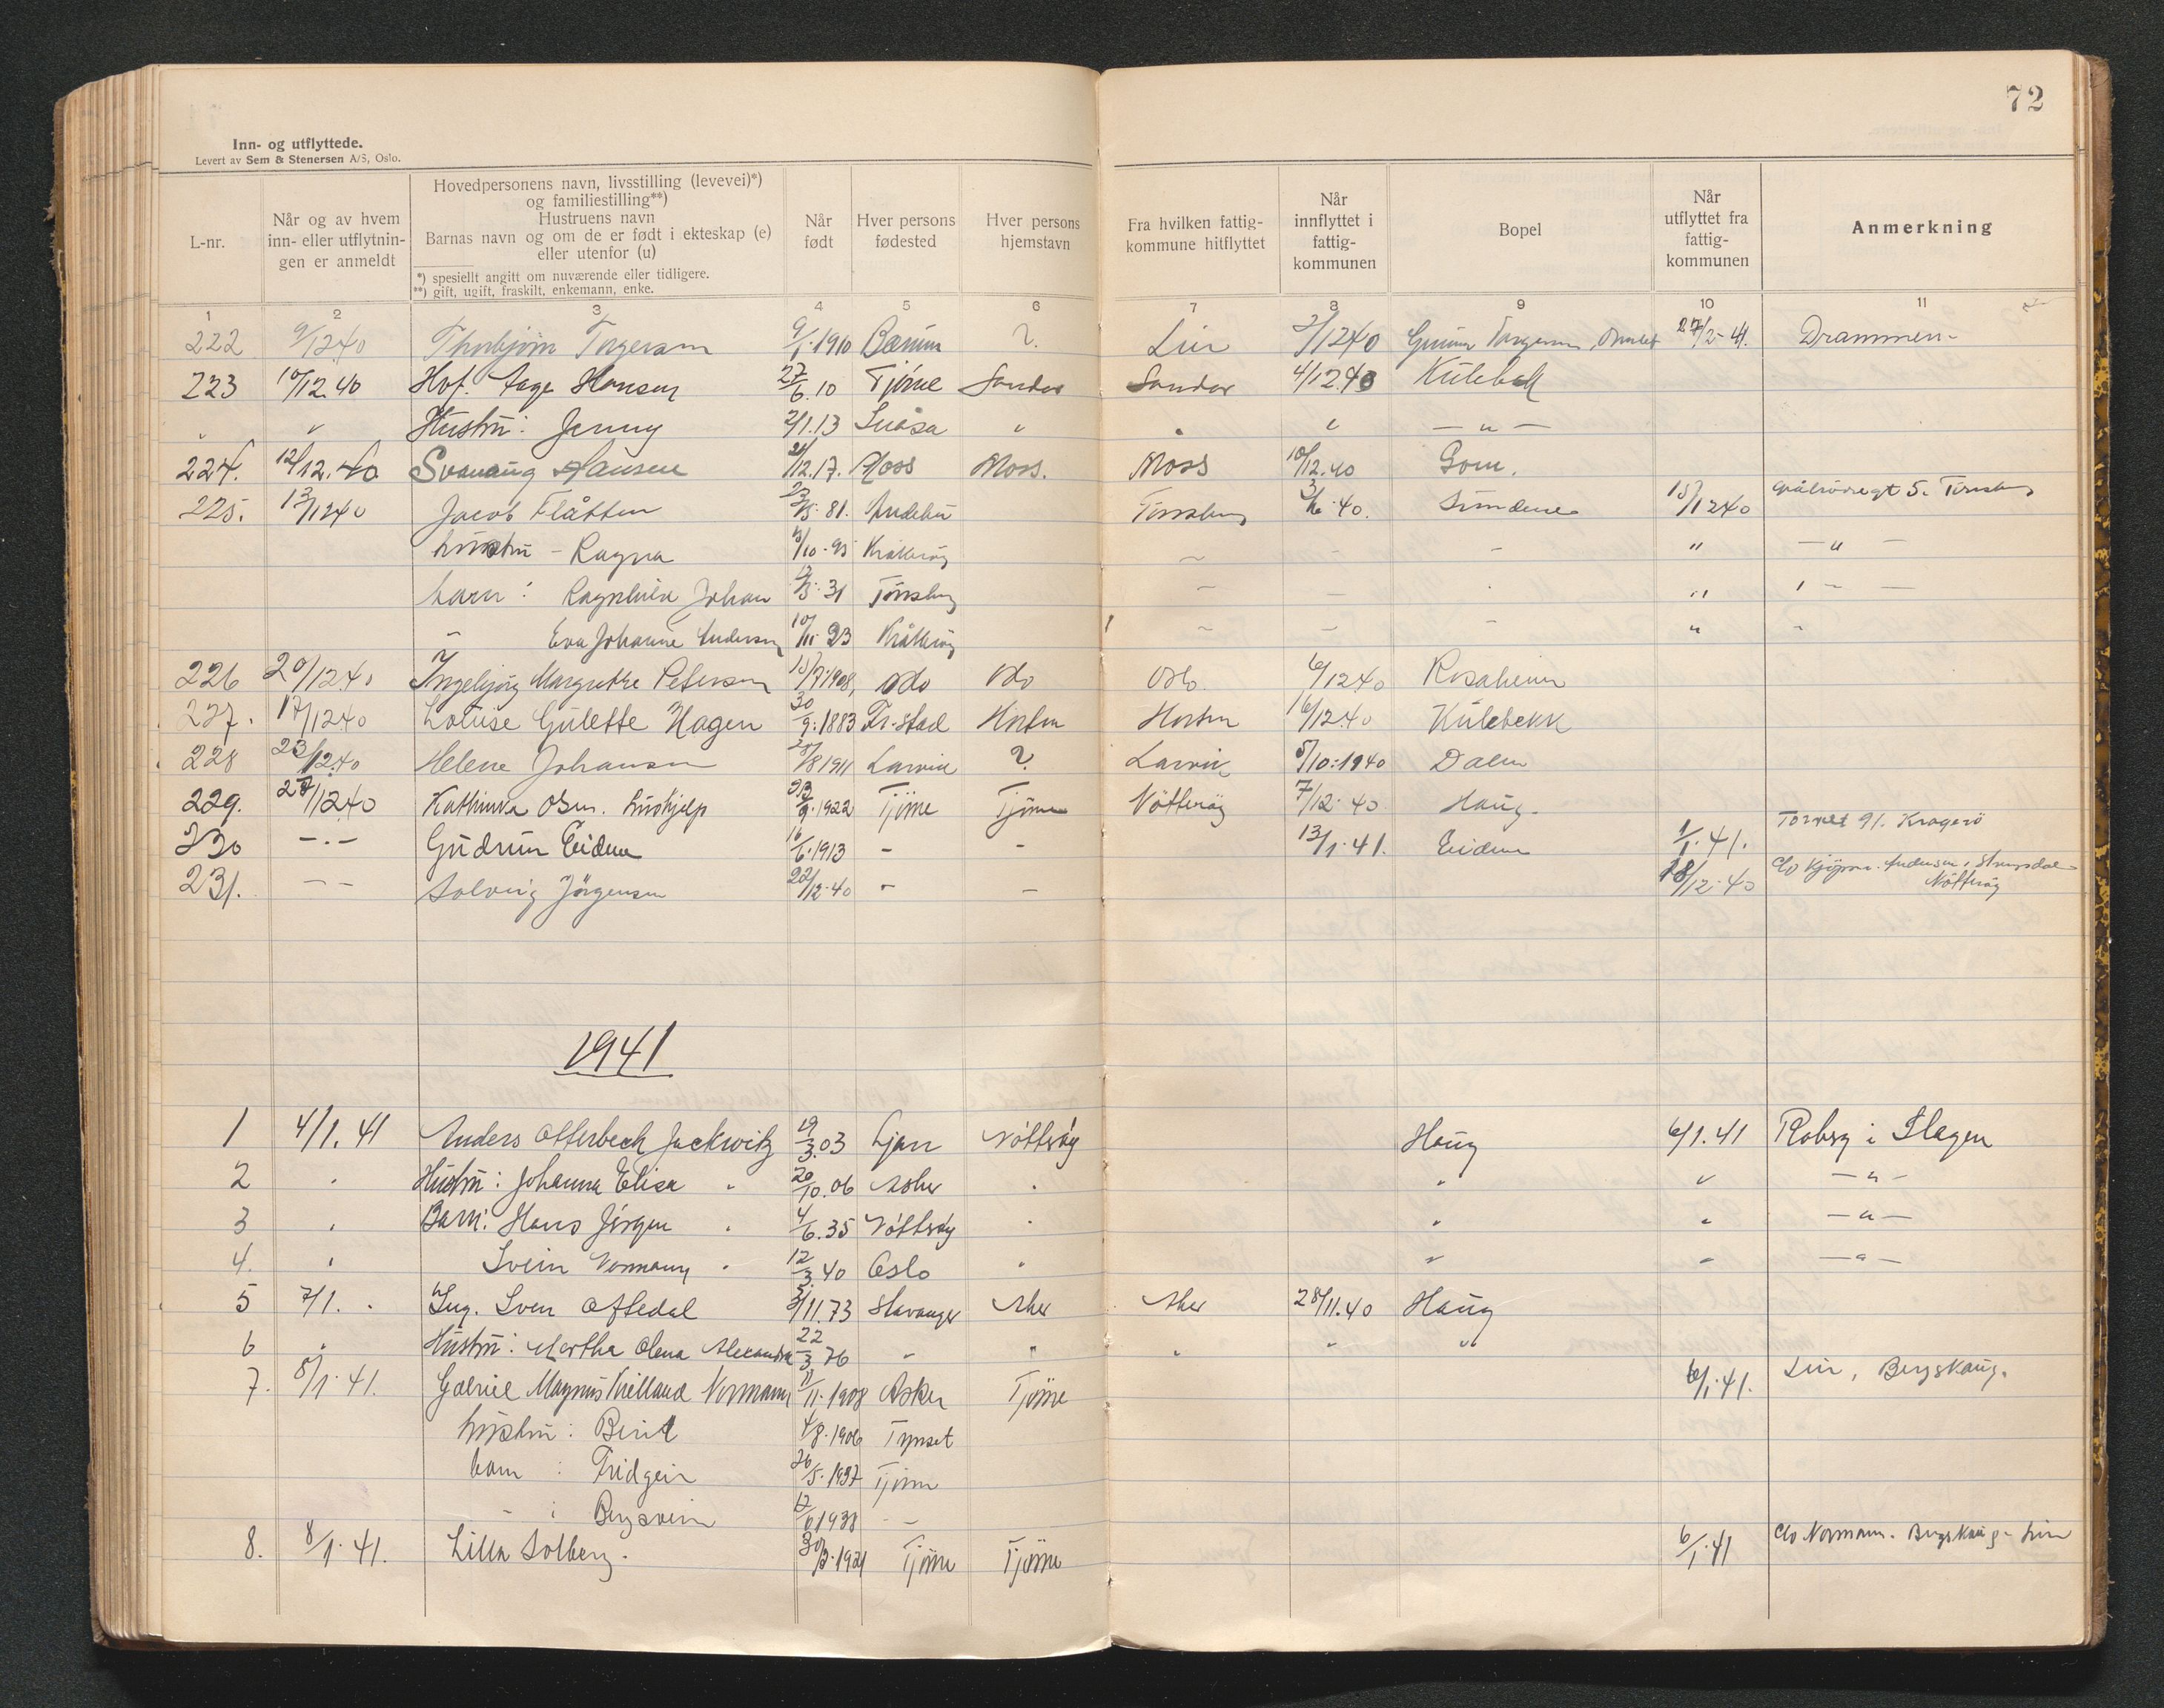 72
Inn- og utflyttede.
Levert av Sem & Stenersen A/S, Oslo.
L-nr.
Når og av hvem inn- eller utflytnin- gen er anmeldt
Hovedpersonens navn, livsstilling (levevei)*)
og familiestilling**)
Hustruens navn
Barnas navn og om de er født i ekteskap (e)
eller utenfor (u)
*) spesiellt angitt om nuværende eller tidligere.
**) gift, ugift, fraskilt, enkemann, enke.
Når født
Hver persons fødested
Hver persons hjemstavn
Fra hvilken fattig- kommune hitflyttet
Når innflyttet i fattig- kommunen
Bopel
Når utflyttet fra fattig- kommunen
Anmerkning
1 2 3 4 5 6 7 8 9 10 11
222 9/12 40 Thorbjørn Torgersen 9/1.1910 Bærum ? Lier 3/12 40 Gunnar Torgersen 27/2-41. Drammen-
223 10/12.40 Hof. Aage Hansen 27/6.10 Tjöme Sandar Sandar 4/12.40 Kulebekk
" " Hustru: Jenny 2/1.13 Snåsa " " " — " —
224. 12/12.40 Svanaug Hansen 21/12.17. Moss Moss. Moss 10/12.40 Gom.
225. 13/12 40 Jacob Flåtten 23/5.81. Andebu Tönsberg 3/6.40. Sundene 15/12 40 5. Tönsberg
hustru - Ragna /10-95 Kråkeröy " — " —
barn: Ragnhild Johan /3.31 Tönsberg "
" Eva Johanne Andersen 10/11.23 Kråkeröy "
226 20/12.40 Ingebjörg Margrethe Petersen 15/7.1908, Oslo Oslo Oslo 6/12.40 Rosaheim
227. 17/12.40 Lovise Gulette Hagen 30/9.1883 Fr.stad Horten Horten 16/12.40 Kulebekk
228 23/12.40 Helene Johansen /8 1911 Larvik ? Larvik 5/10.1940 Dalen
229. 27/12 40 Kathinka Olsen. hushjelp 23/9.1922 Tjöme Tjöme Nötteröy 7/12.40 Haug.
230 -.- Gudrun Eidene 16/6.1913 - - 13/1.41. Eidene 1/1.41. Torvet 91. Kragerö
231. - - Solveig Jörgensen 22/12.40 - - 18/12.40 c/o Kjöpm. Andersen, Nötteröy
1941
1 4/1.41 Anders Otterbech Jackwitz 19/3.03 Ljan Nötteröy Haug 6/1.41 Roberg i Slagen
2 " Hustru: Johanna Elisa " 20/10.06 Asker " " " — " —
3 " Barn: Hans Jörgen " 4/6.35 Nötteröy " " " — " —
4. " Svein Normann " 12/3.40 Oslo " " " — " —
5 7/1. " Ing. Sven Oftedal 3/11.73 Stavanger Aker Aker 28/11.40 Haug
6 " Hustru: Martha Olena Alexandra 22/3.76 " " " " "
7. 8/1.41. Gabriel Magnus Kielland Normann 11/11.1908 Asker Tjöme 6/1.41. Lier, Bergskaug.
hustru: Berit 4/8.1906 Tynset
barn: Fridgeir 26/5.1937 Tjöme
- : Bergsvein 12/6 1938 - -
8. 8/1.41. Lilla Solberg. 30/3.1921 Tjöme Tjöme 6/1.41 c/o Normann. Bergskaug - Lier